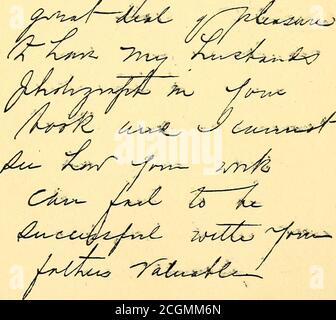 great deal of pleasure
to have my husbands
photograph in your
book and I cannot
see how your work
can fail to be
successful with your
fathers valuable
alamy
Image ID: 2CGMM6N
www.alamy.com